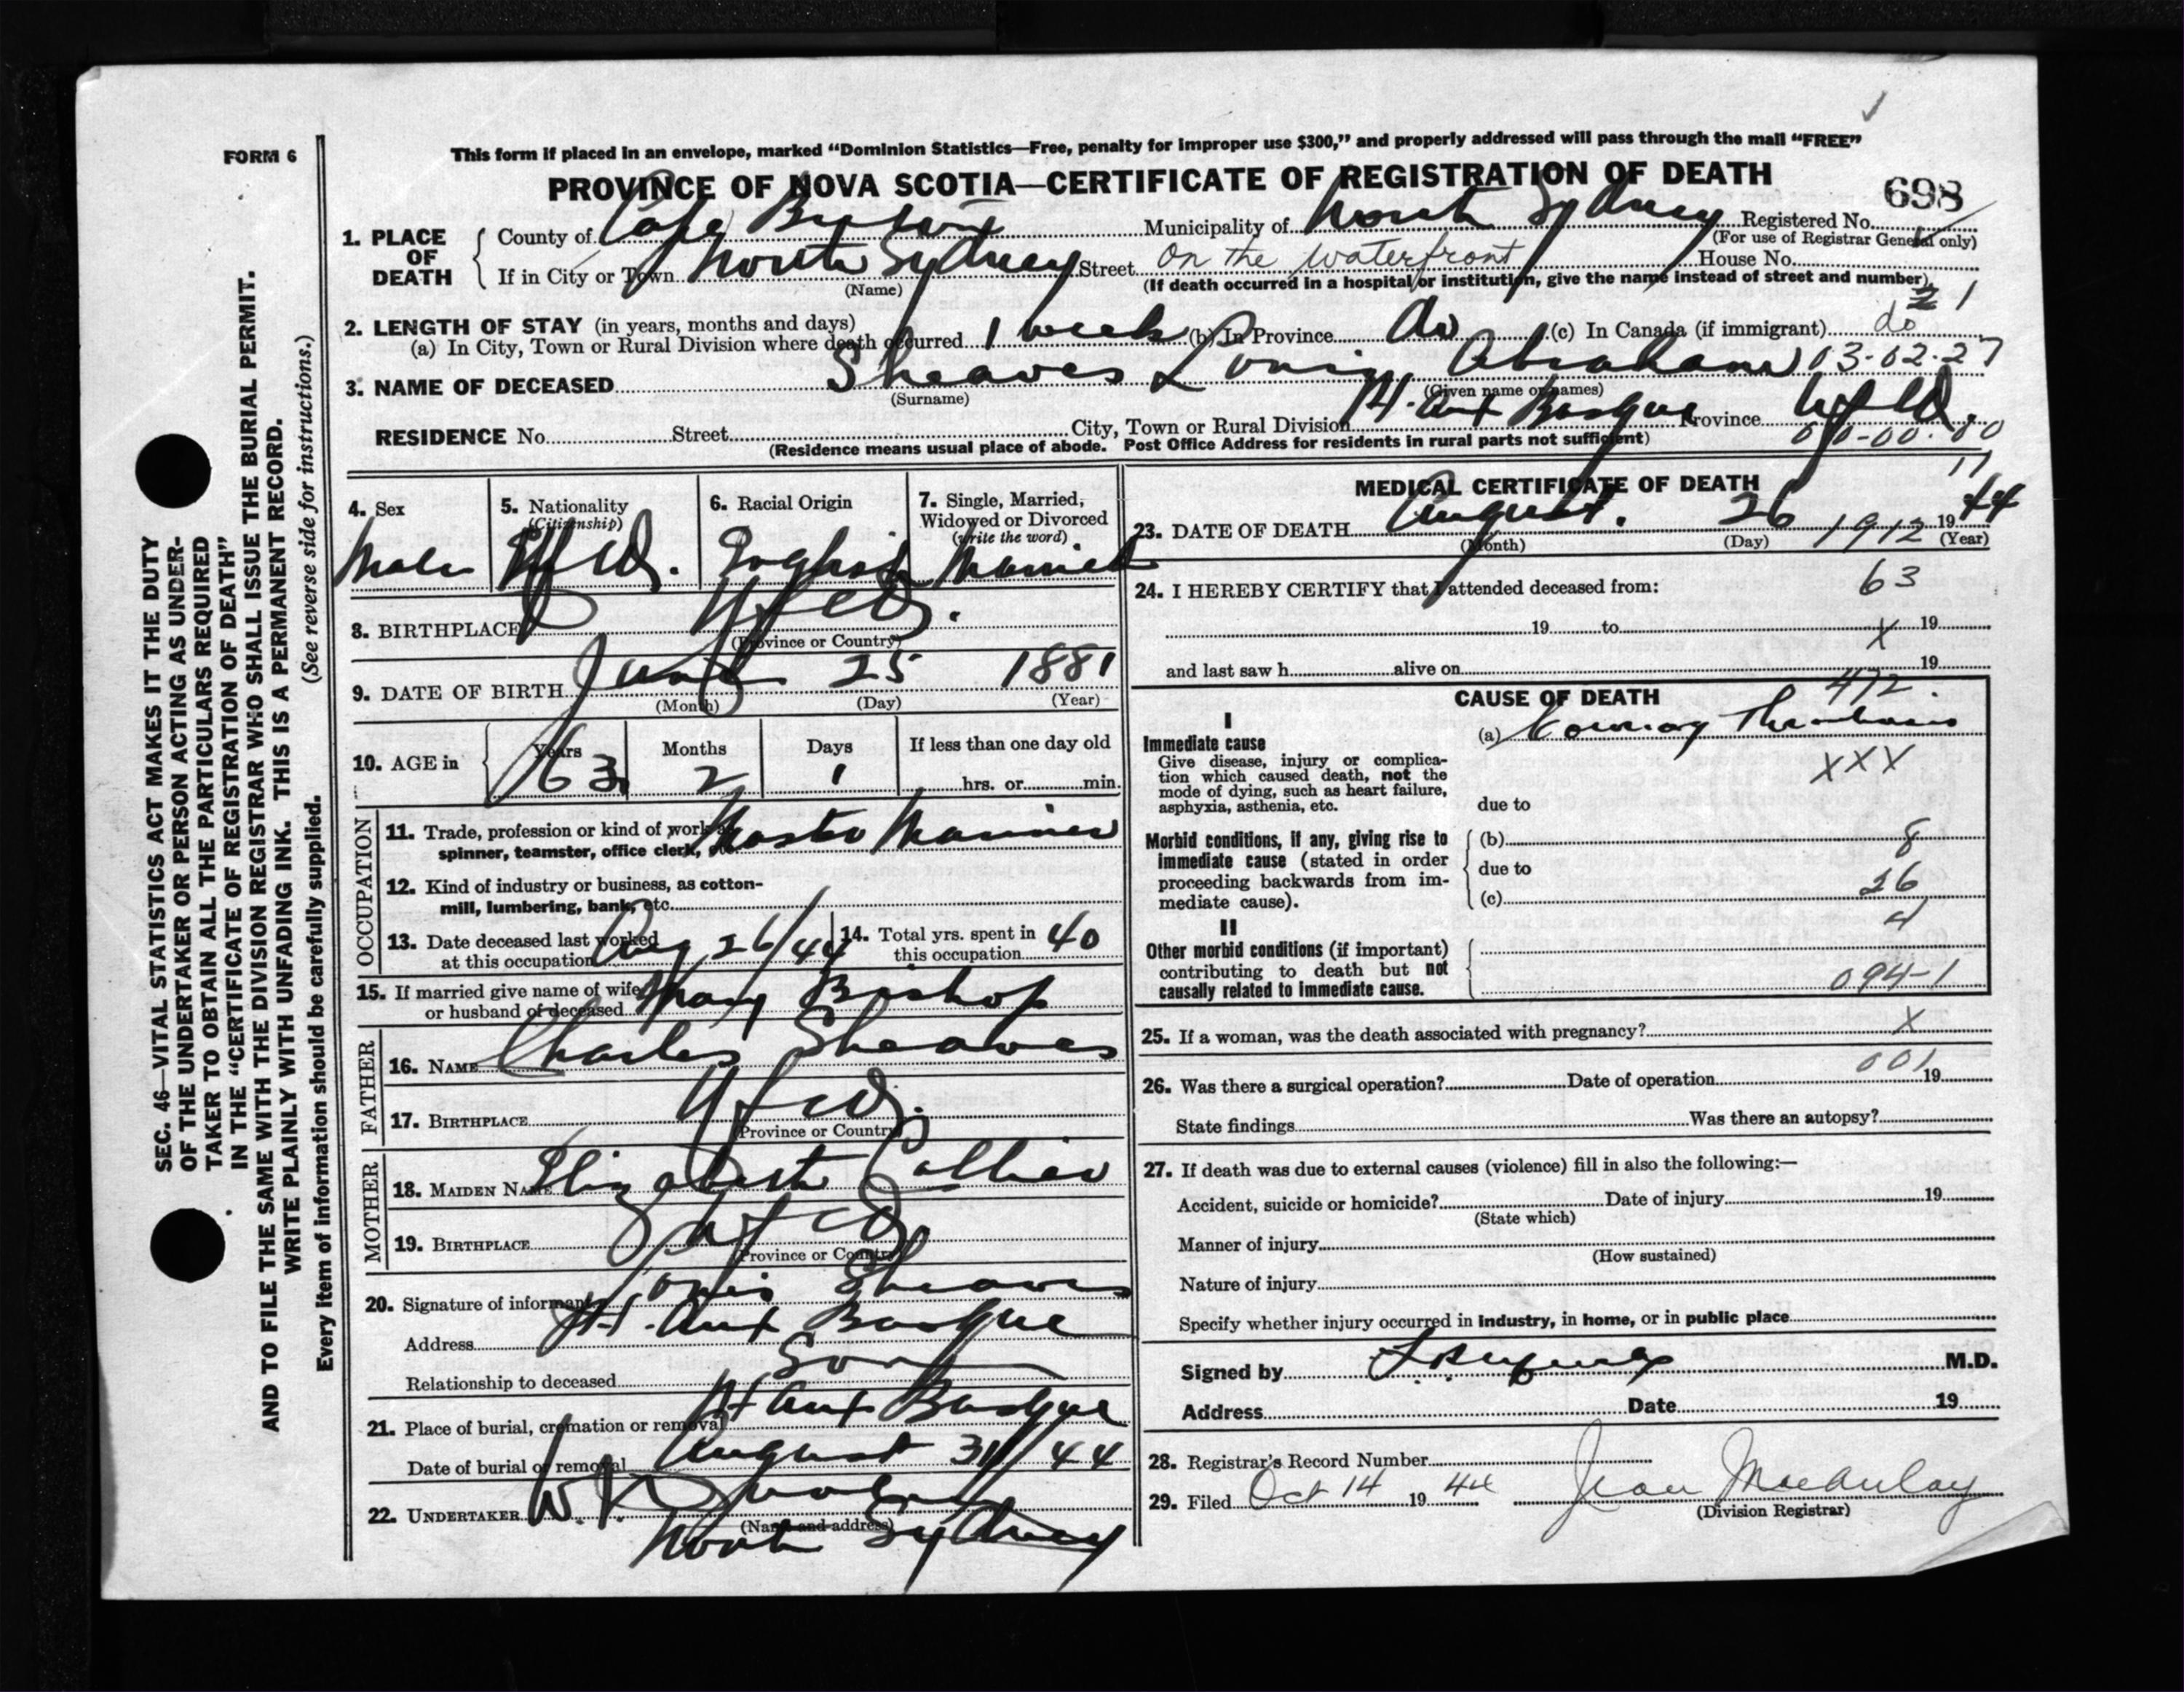 FORM 6
This form if placed in an envelope, marked “Dominion Statistics—Free, penalty for improper use $300,” and properly addressed will pass through the mail “FREE”
PROVINCE OF NOVA SCOTIA—CERTIFICATE OF REGISTRATION OF DEATH
698
1. PLACE OF DEATH
County of Cape Breton Municipality of North Sydney Registered No.
(For use of Registrar General only)
If in City or Town North Sydney Street On the Waterfront House No.
(Name) (If death occurred in a hospital or institution, give the name instead of street and number)
21
2. LENGTH OF STAY (in years, months and days)
(a) In City, Town or Rural Division where death occurred 1 week (b) In Province do (c) In Canada (if immigrant) do
3. NAME OF DECEASED Sheaves Louis Abraham 03-02-27
(Surname) (Given name or names)
RESIDENCE No. Street City, Town or Rural Division Pt. aux Basque Province Nfld.
(Residence means usual place of abode. Post Office Address for residents in rural parts not sufficient)
00-00-00
4. Sex Male
5. Nationality (Citizenship) Nfld.
6. Racial Origin English
7. Single, Married, Widowed or Divorced (write the word) Married
8. BIRTHPLACE Nfld.
(Province or Country)
9. DATE OF BIRTH 25 1881
(Month) (Day) (Year)
10. AGE in Years 63 Months 2 Days 1 If less than one day old
hrs. or min.
OCCUPATION
11. Trade, profession or kind of work as spinner, teamster, office clerk, etc. Master Mariner
12. Kind of industry or business, as cotton-
mill, lumbering, bank, etc.
13. Date deceased last worked at this occupation Aug 26/44
14. Total yrs. spent in this occupation 40
15. If married give name of wife or husband of deceased Mary Bishop
FATHER
16. NAME Charles Sheaves
17. BIRTHPLACE Nfld.
(Province or Country)
MOTHER
18. MAIDEN NAME Elizabeth Collier
19. BIRTHPLACE Nfld.
(Province or Country)
20. Signature of informant Louis Sheaves
Address Pt. aux Basque
Relationship to deceased Son
21. Place of burial, cremation or removal Pt aux Basque
Date of burial or removal August 31/44
22. UNDERTAKER W.
(Name and address)
North Sydney
MEDICAL CERTIFICATE OF DEATH
11
23. DATE OF DEATH August. 26 1912 19 44
(Month) (Day) (Year)
24. I HEREBY CERTIFY that I attended deceased from:
63
19 to 19
X
and last saw h alive on 19
472.
CAUSE OF DEATH
I
Immediate cause
Give disease, injury or complica-
tion which caused death, not the
mode of dying, such as heart failure,
asphyxia, asthenia, etc.
(a) Coronary Thrombosis
XXX
due to
Morbid conditions, if any, giving rise to
immediate cause (stated in order
proceeding backwards from im-
mediate cause).
(b) 8
due to
(c) 26
II
Other morbid conditions (if important)
contributing to death but not
causally related to immediate cause.
4
094-1
25. If a woman, was the death associated with pregnancy? X
001
26. Was there a surgical operation? Date of operation 19
State findings Was there an autopsy?
27. If death was due to external causes (violence) fill in also the following:—
Accident, suicide or homicide? Date of injury 19
(State which)
Manner of injury
(How sustained)
Nature of injury
Specify whether injury occurred in industry, in home, or in public place
Signed by M.D.
Address Date 19
28. Registrar's Record Number
29. Filed Oct 14 19 44 Jean Macaulay
(Division Registrar)
SEC. 46—VITAL STATISTICS ACT MAKES IT THE DUTY
OF THE UNDERTAKER OR PERSON ACTING AS UNDER-
TAKER TO OBTAIN ALL THE PARTICULARS REQUIRED
IN THE “CERTIFICATE OF REGISTRATION OF DEATH”
AND TO FILE THE SAME WITH THE DIVISION REGISTRAR WHO SHALL ISSUE THE BURIAL PERMIT.
WRITE PLAINLY WITH UNFADING INK. THIS IS A PERMANENT RECORD.
Every item of information should be carefully supplied. (See reverse side for instructions.)